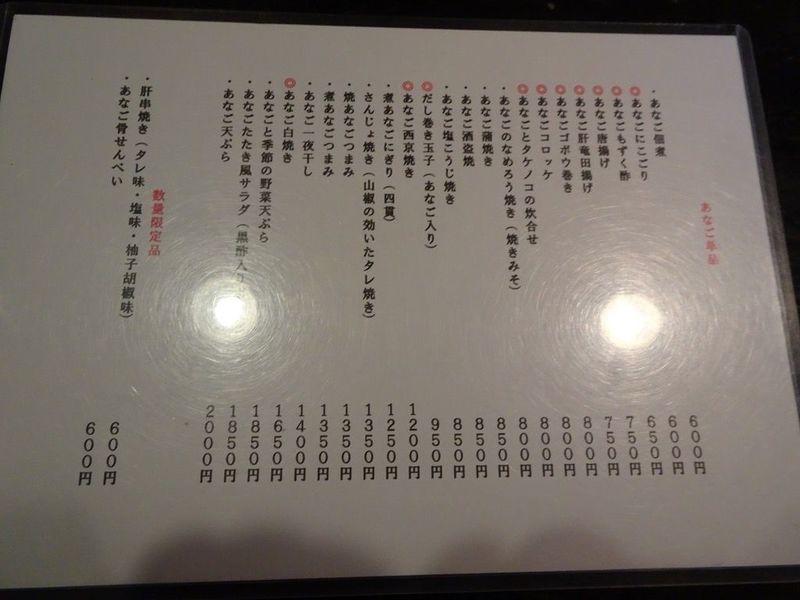 あなご単品
・あなご佃煮 600円
◎あなごにこごり 600円
◎あなごもずく酢 650円
◎あなご唐揚げ 750円
◎あなご肝竜田揚げ 750円
◎あなごゴボウ巻き 800円
◎あなごコロッケ 800円
◎あなごとタケノコの炊合せ 800円
・あなごのなめろう焼き(焼きみそ) 800円
・あなご蒲焼き 850円
・あなご酒盗焼 850円
・あなご塩こうじ焼き 850円
◎だし巻き玉子(あなご入り) 950円
◎あなご西京焼き 1200円
・煮あなごにぎり(四貫) 1250円
・さんじょ焼き(山椒の効いたタレ焼き) 1350円
・焼あなごつまみ 1350円
・煮あなごつまみ 1350円
・あなご一夜干し 1400円
◎あなご白焼き 1650円
・あなごと季節の野菜天ぷら 1850円
・あなごたたき風サラダ(黒酢入り 1850円
・あなご天ぷら 2000円
数量限定品
・肝串焼き(タレ味・塩味・柚子胡椒味) 600円
・あなご骨せんべい 600円